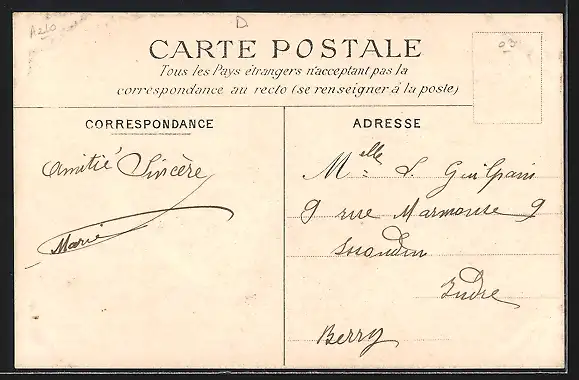 A210
D
03
CARTE POSTALE
Tous les Pays étrangers n'acceptant pas la
correspondance au recto (se renseigner à la poste)
CORRESPONDANCE
ADRESSE
Amitié Sincère
Marie
Melle S. Guilpain
9 rue Marmouse 9
Issoudun
Indre
Berry